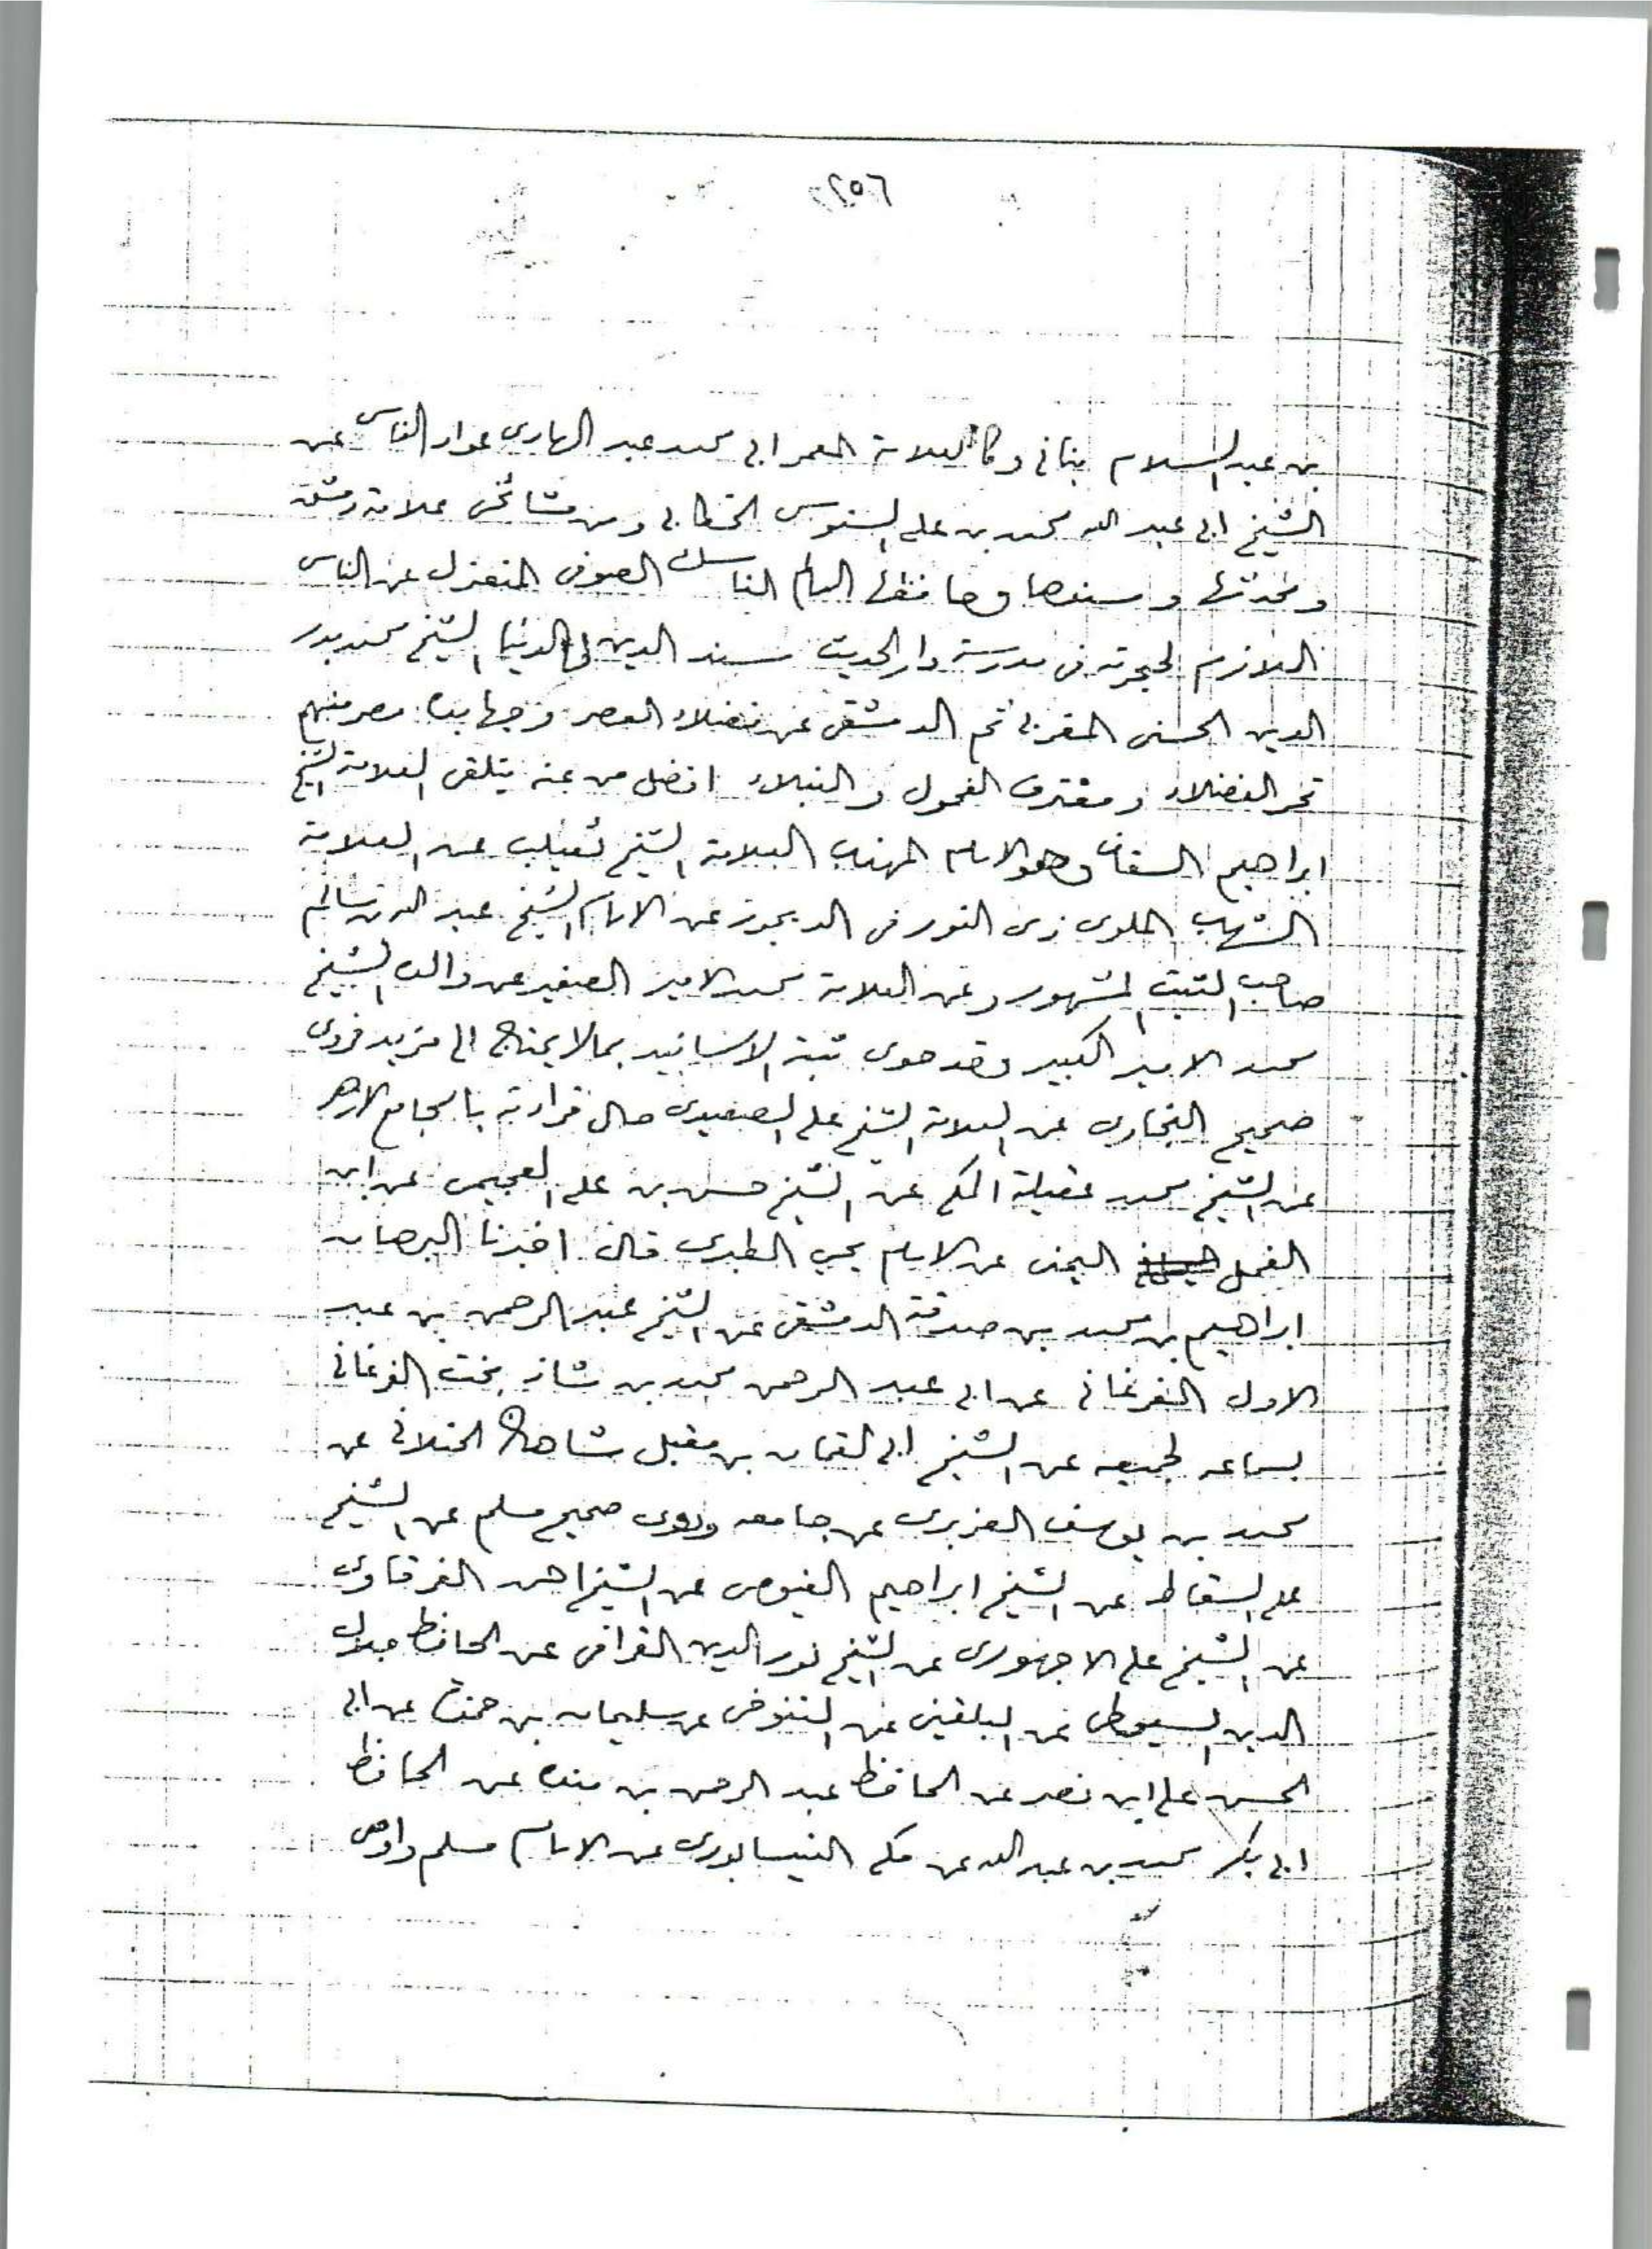 ٢٥٦
بن عبد السلام بنانى وكالعلامة المعمر ابى محمد عبد الهادى عواد الناس عن
الشيخ ابى عبد الله محمد بن على السنوسى الخطابى ومن مشائخى علامة دمشق
ومحدثها ومسندها وحافظها العالم الناسك الصوفى المنعزل عن الناس
الملازم لحجرته فى مدرسة دار الحديث مسند الدين فى الدنيا الشيخ محمد بدر
الدين الحسنى المغربى ثم الدمشقى عن فضلاء العصر وجهابذه مصر منهم
نحر الفضلاء ومغترف الفحول والنبلاء افضل من عنه يتلقى العلامة الشيخ
ابراهيم السقا وهو الامام المهذب العلامة الشيخ ثعيلب عن العلامة
الشهاب الملوى ذى النور فى الديجور عن الامام الشيخ عبد الله بن سالم
صاحب الثبت المشهور وعن العلامة محمد الامير الصغير عن والده الشيخ
محمد الامير الكبير وقد حوى ثبته الاسانيد بما لا يحتاج الى مزيد فروى
صحيح البخارى عن العلامة الشيخ على الصعيدى حال قراءته بالجامع الازهر
عن الشيخ محمد عقيلة المكى عن الشيخ حسن بن على العجيمى عن ابن
العجل اليمنى عن الامام يحيى الطبرى قال اخبرنا البرهان
ابراهيم بن محمد بن صدقة الدمشقى عن الشيخ عبد الرحمن بن عبد
الاول الفرغانى عن ابى عبد الرحمن محمد بن شاذ بخت الفرغانى
بسماعه لجميعه عن الشيخ ابى لقمان بن مقبل شاهان الختلانى عن
محمد بن يوسف الفربرى عن جامعه وروى صحيح مسلم عن الشيخ
على السقاط عن الشيخ ابراهيم الفيومى عن الشيخ احمد الغرقاوى
عن الشيخ على الاجهورى عن الشيخ نور الدين القرافى عن الحافظ جلال
الدين السيوطى عن البلقينى عن التنوخى عن سليمان بن حمزة عن ابى
الحسن على ابن نصر عن الحافظ عبد الرحمن بن منده عن الحافظ
ابى بكر محمد بن عبد الله عن مكى النيسابورى عن الامام مسلم واوصى